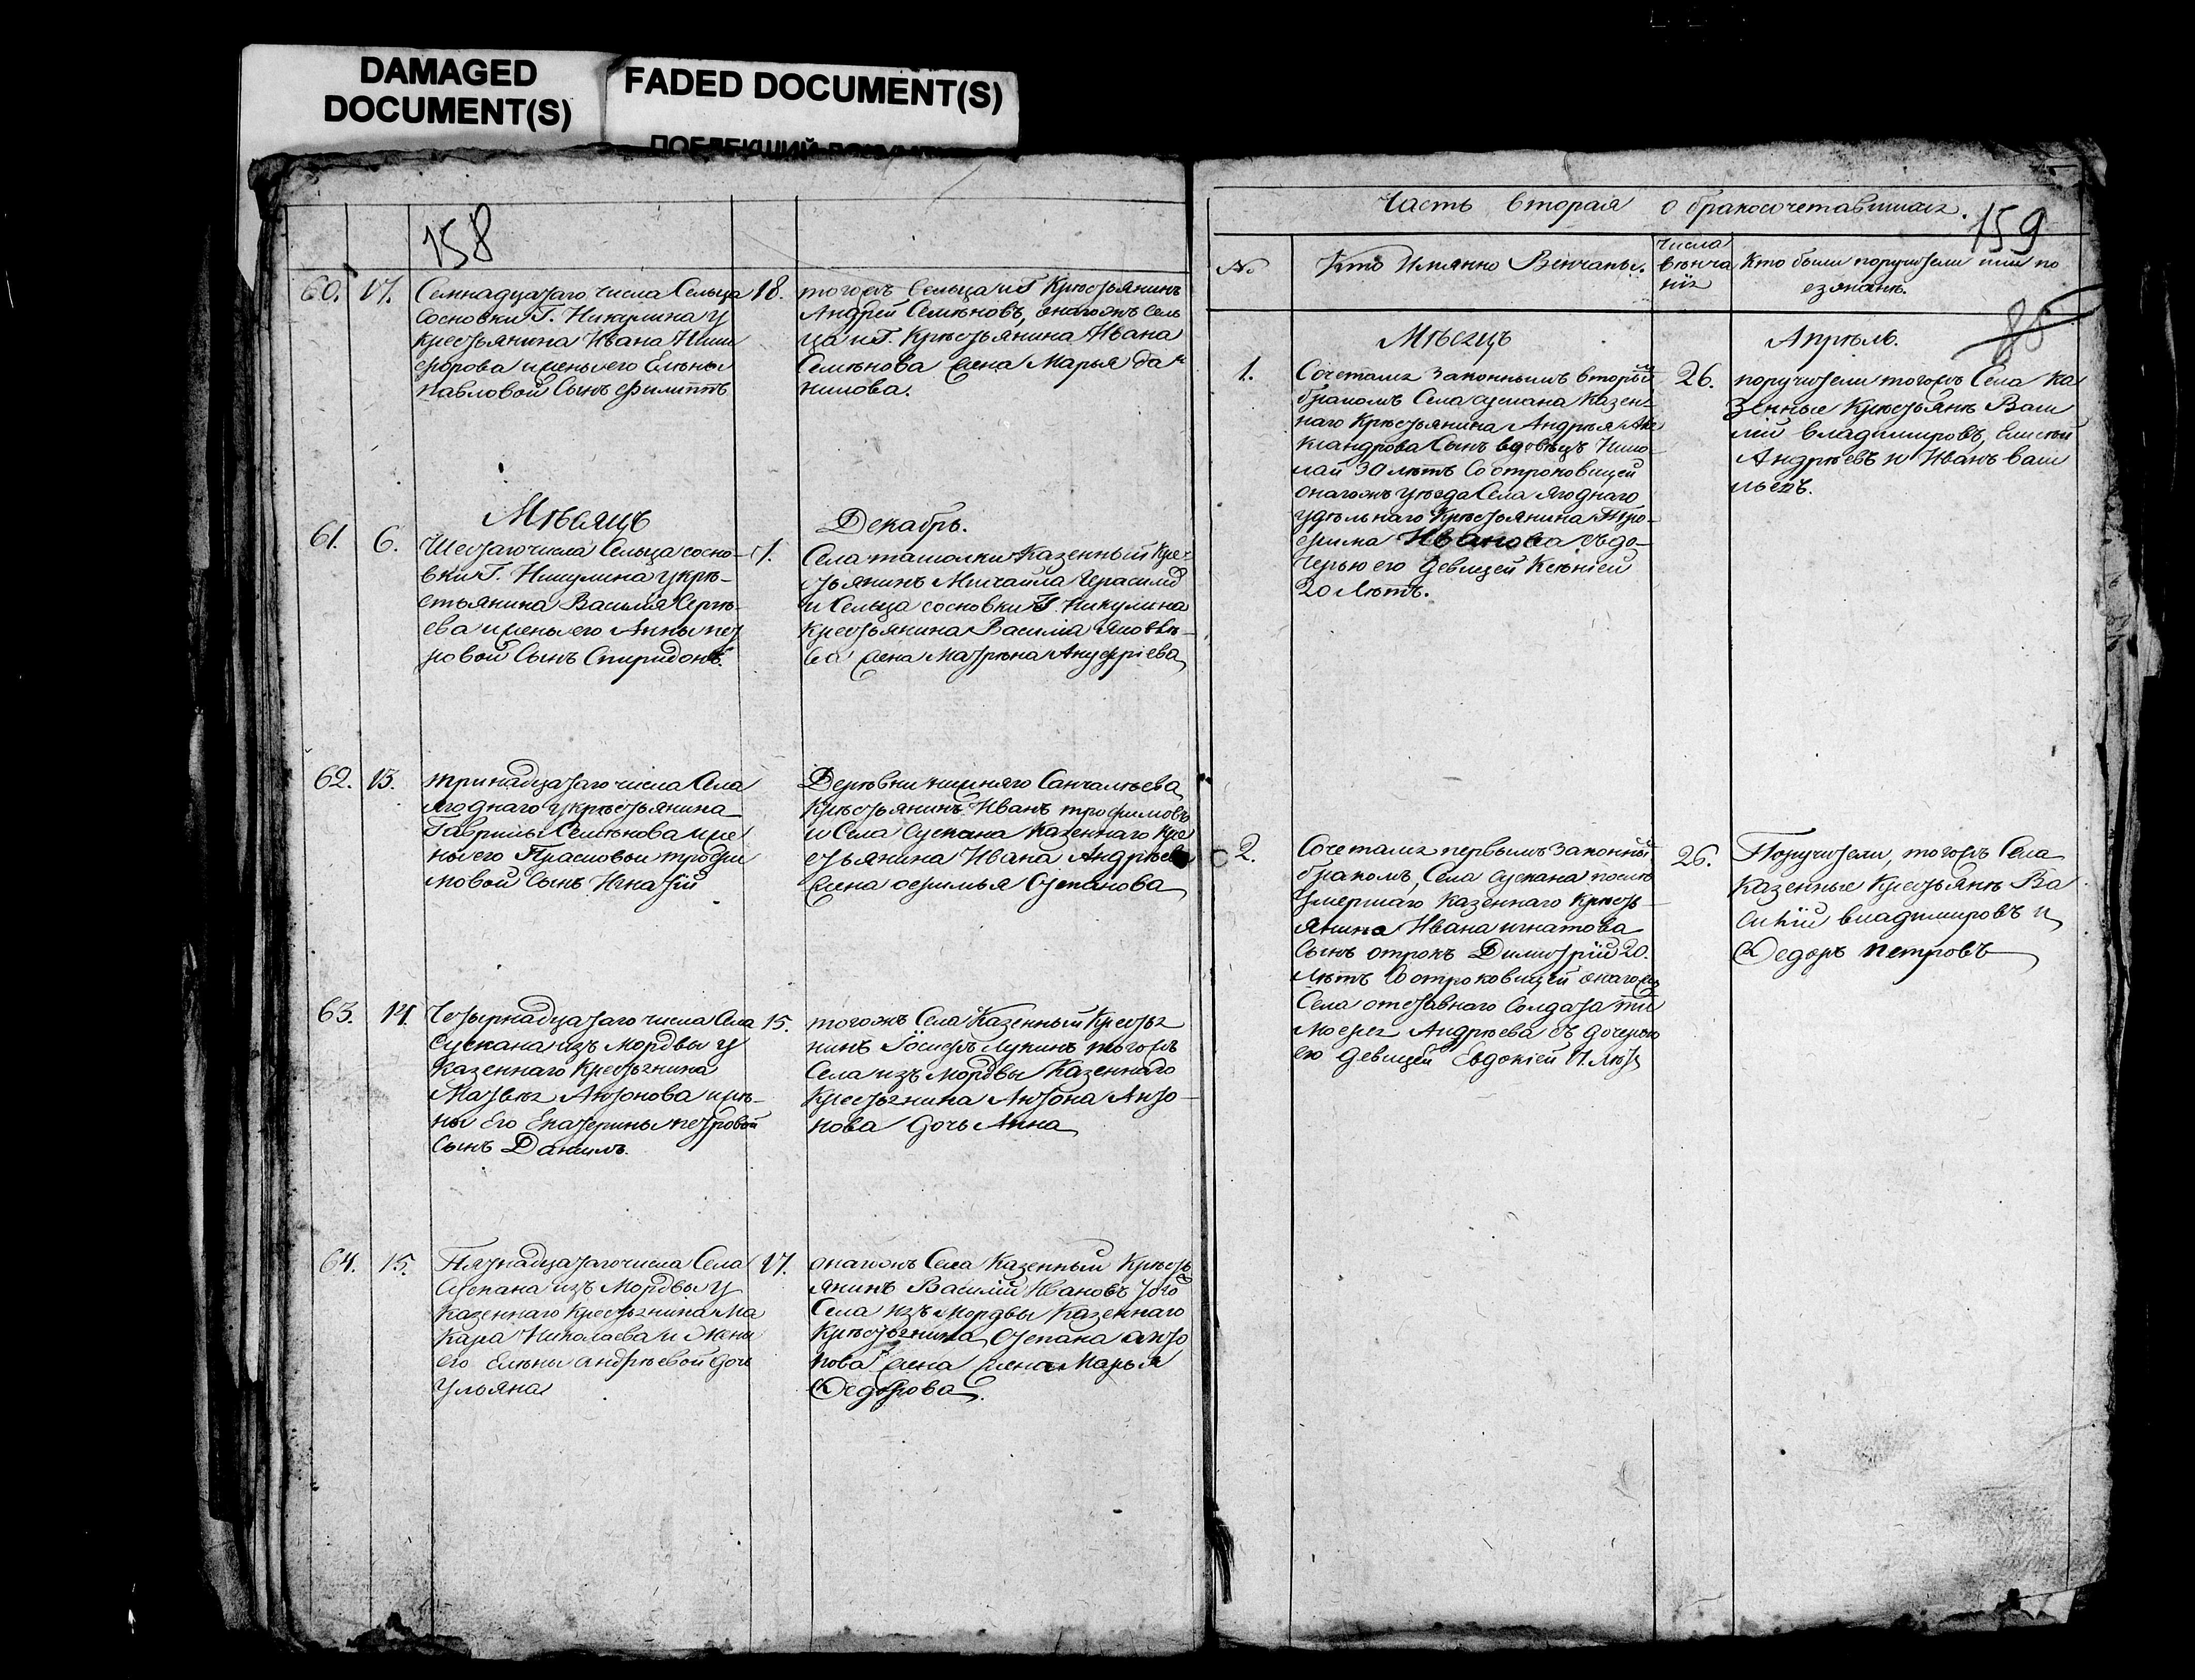 DAMAGED
DOCUMENT(S)
FADED DOCUMENT(S)
158
60. 17. Семнадцатаго числа Сельца
Сосновки Г. Никулина у
крестьянина Ивана Ники
форова и жены его Елены
Павловой Сынъ Филиппъ
18. тогожъ Сельца и Г. Крестьянинъ
Андрей Семѣновъ, онагожъ Сель
ца и Г. Крѣстьянина Ивана
Семѣнова жена Марья Да
нилова.
Мѣсяцъ Декабрь.
61. 6. Шестаго числа Сельца Сосно-
вки Г. Никулина у крѣ-
стьянина Василия Сергѣ-
ева и жены его Анны Пет
ровой Сынъ Спиридонъ.
7. Села ташолки Казенный Кре-
стьянинъ Михаила Герасимо
и Сельца сосновки Г. Никулина
Крестьянина Василia Яковлѣ-
ва жена Матрѣна Ануфріева
62. 13. тринадцатаго числа Села
Ягоднаго у крѣстьянина
Гаврилы Семѣнова и же
ны его Прасковьи трофи
мовой Сынъ Игнатій
Деревни нижняго Санчалѣева
Крѣстьянинъ Иванъ трофимовъ
и Села Сускана Казеннаго Кре
стьянина Ивана Андрѣева
жена офимья Степанова
63. 14. Четырнадцатаго числа Села
Сускана изъ Мордвы у
Казеннаго Крестьянина
Матвѣя Антонова и жѣ-
ны Его Екатерины петровой
Сынъ Данилъ.
15. тогожъ Села Казенный Крестья
нинъ Іосифъ Лукинъ тогожъ
Села изъ мордвы Казеннаго
Крестьянина Антона Анто-
нова дочь Анна
64. 15. Пятнадцатаго числа Села
Сускана изъ Мордвы у
Казеннаго Крестьянина Ма
кара Николаева и Жены
его Елены андрѣевой дочь
Ульяна
17. онагожъ Села Казенный Крѣсть
янинъ Василій Ивановъ того
Села изъ мордвы Казеннаго
Крѣстьянина Степана анто
нова жена жена Марья
Федорова.
Часть вторая о бракосочетавшихся.
159
№ Кто Имянно Вѣнчаны. числа вѣнча нія Кто были поручители или по
езжанѣ.
Мѣсяцъ Апрѣль.
1. Сочетался законнымъ вторым
бракомъ Села сускана казен-
наго Крѣстьянина Андрѣя Але
ксандрова Сынъ вдовѣцъ Нико-
лай 30 лѣтъ Со отроковицей
онагожъ уѣзда Села Ягоднаго
удѣльнаго Крѣстьянина Тро-
фима Иванова съ до-
черью его девицей Ксѣніей
20 лѣтъ.
26. поручители тогожъ Села Ка
зенные Крѣстьянѣ Васи
лій владимировъ,
Андрѣевъ и Иванъ васи
льевъ.
2. Сочетался первымъ законным
бракомъ, Села сускана послѣ
умершаго казеннаго крѣсть
янина Ивана игнатова
сынъ отрокъ Димитрій 20.
лѣтъ Со отроковицей онагожъ
Села отставнаго Солдата ти
мофея Андрѣева съ дочерью
его девицей Евдокіей 17. лѣт
26. Поручители, тогожъ Села
казенные Крестьянѣ Ва
силій владимировъ и
Федоръ петровъ